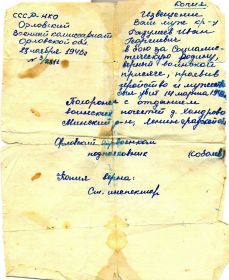 Копия
СССР-НКО
Орловский
Военный комиссариат
Орловской обл.
Извещение
Ваш муж кр-ц
Иван
Георгиевич
в бою за Социалис-
тическую Родину,
верный воинской
присяге, проявив
геройство и мужество
был убит 14 марта
Похоронен с отданием
воинских почестей д. Хандрово
Мгинский р-н, Ленинградской
Орловский горвоенком
подполковник (Соболев)
Копия верна:
Ст. инспектор